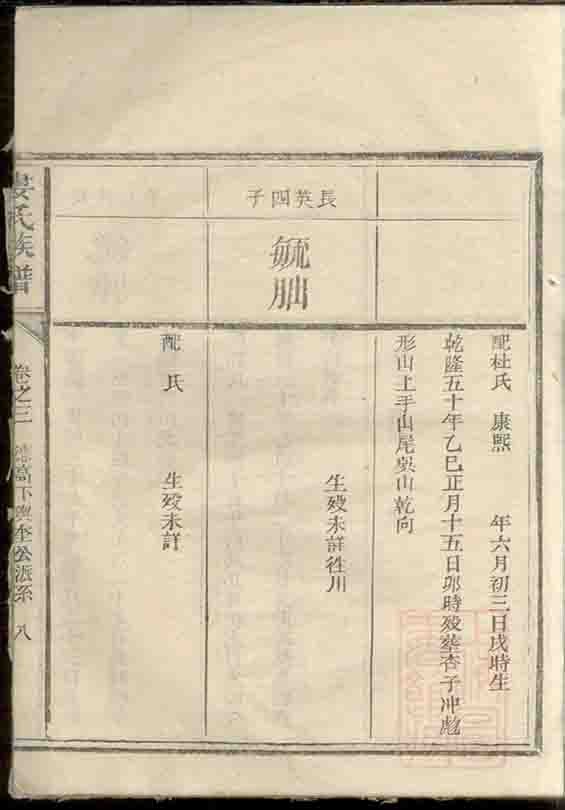 配杜氏 康熙 年六月初三日戌時生
乾隆五十年乙巳正月十五日卯時殁塟杏子冲彪
形山上手山尾巽山乾向
長英四子
毓
生殁未詳徃川
配 氏 生殁未詳
婁氏族譜 卷之三 公派系 八